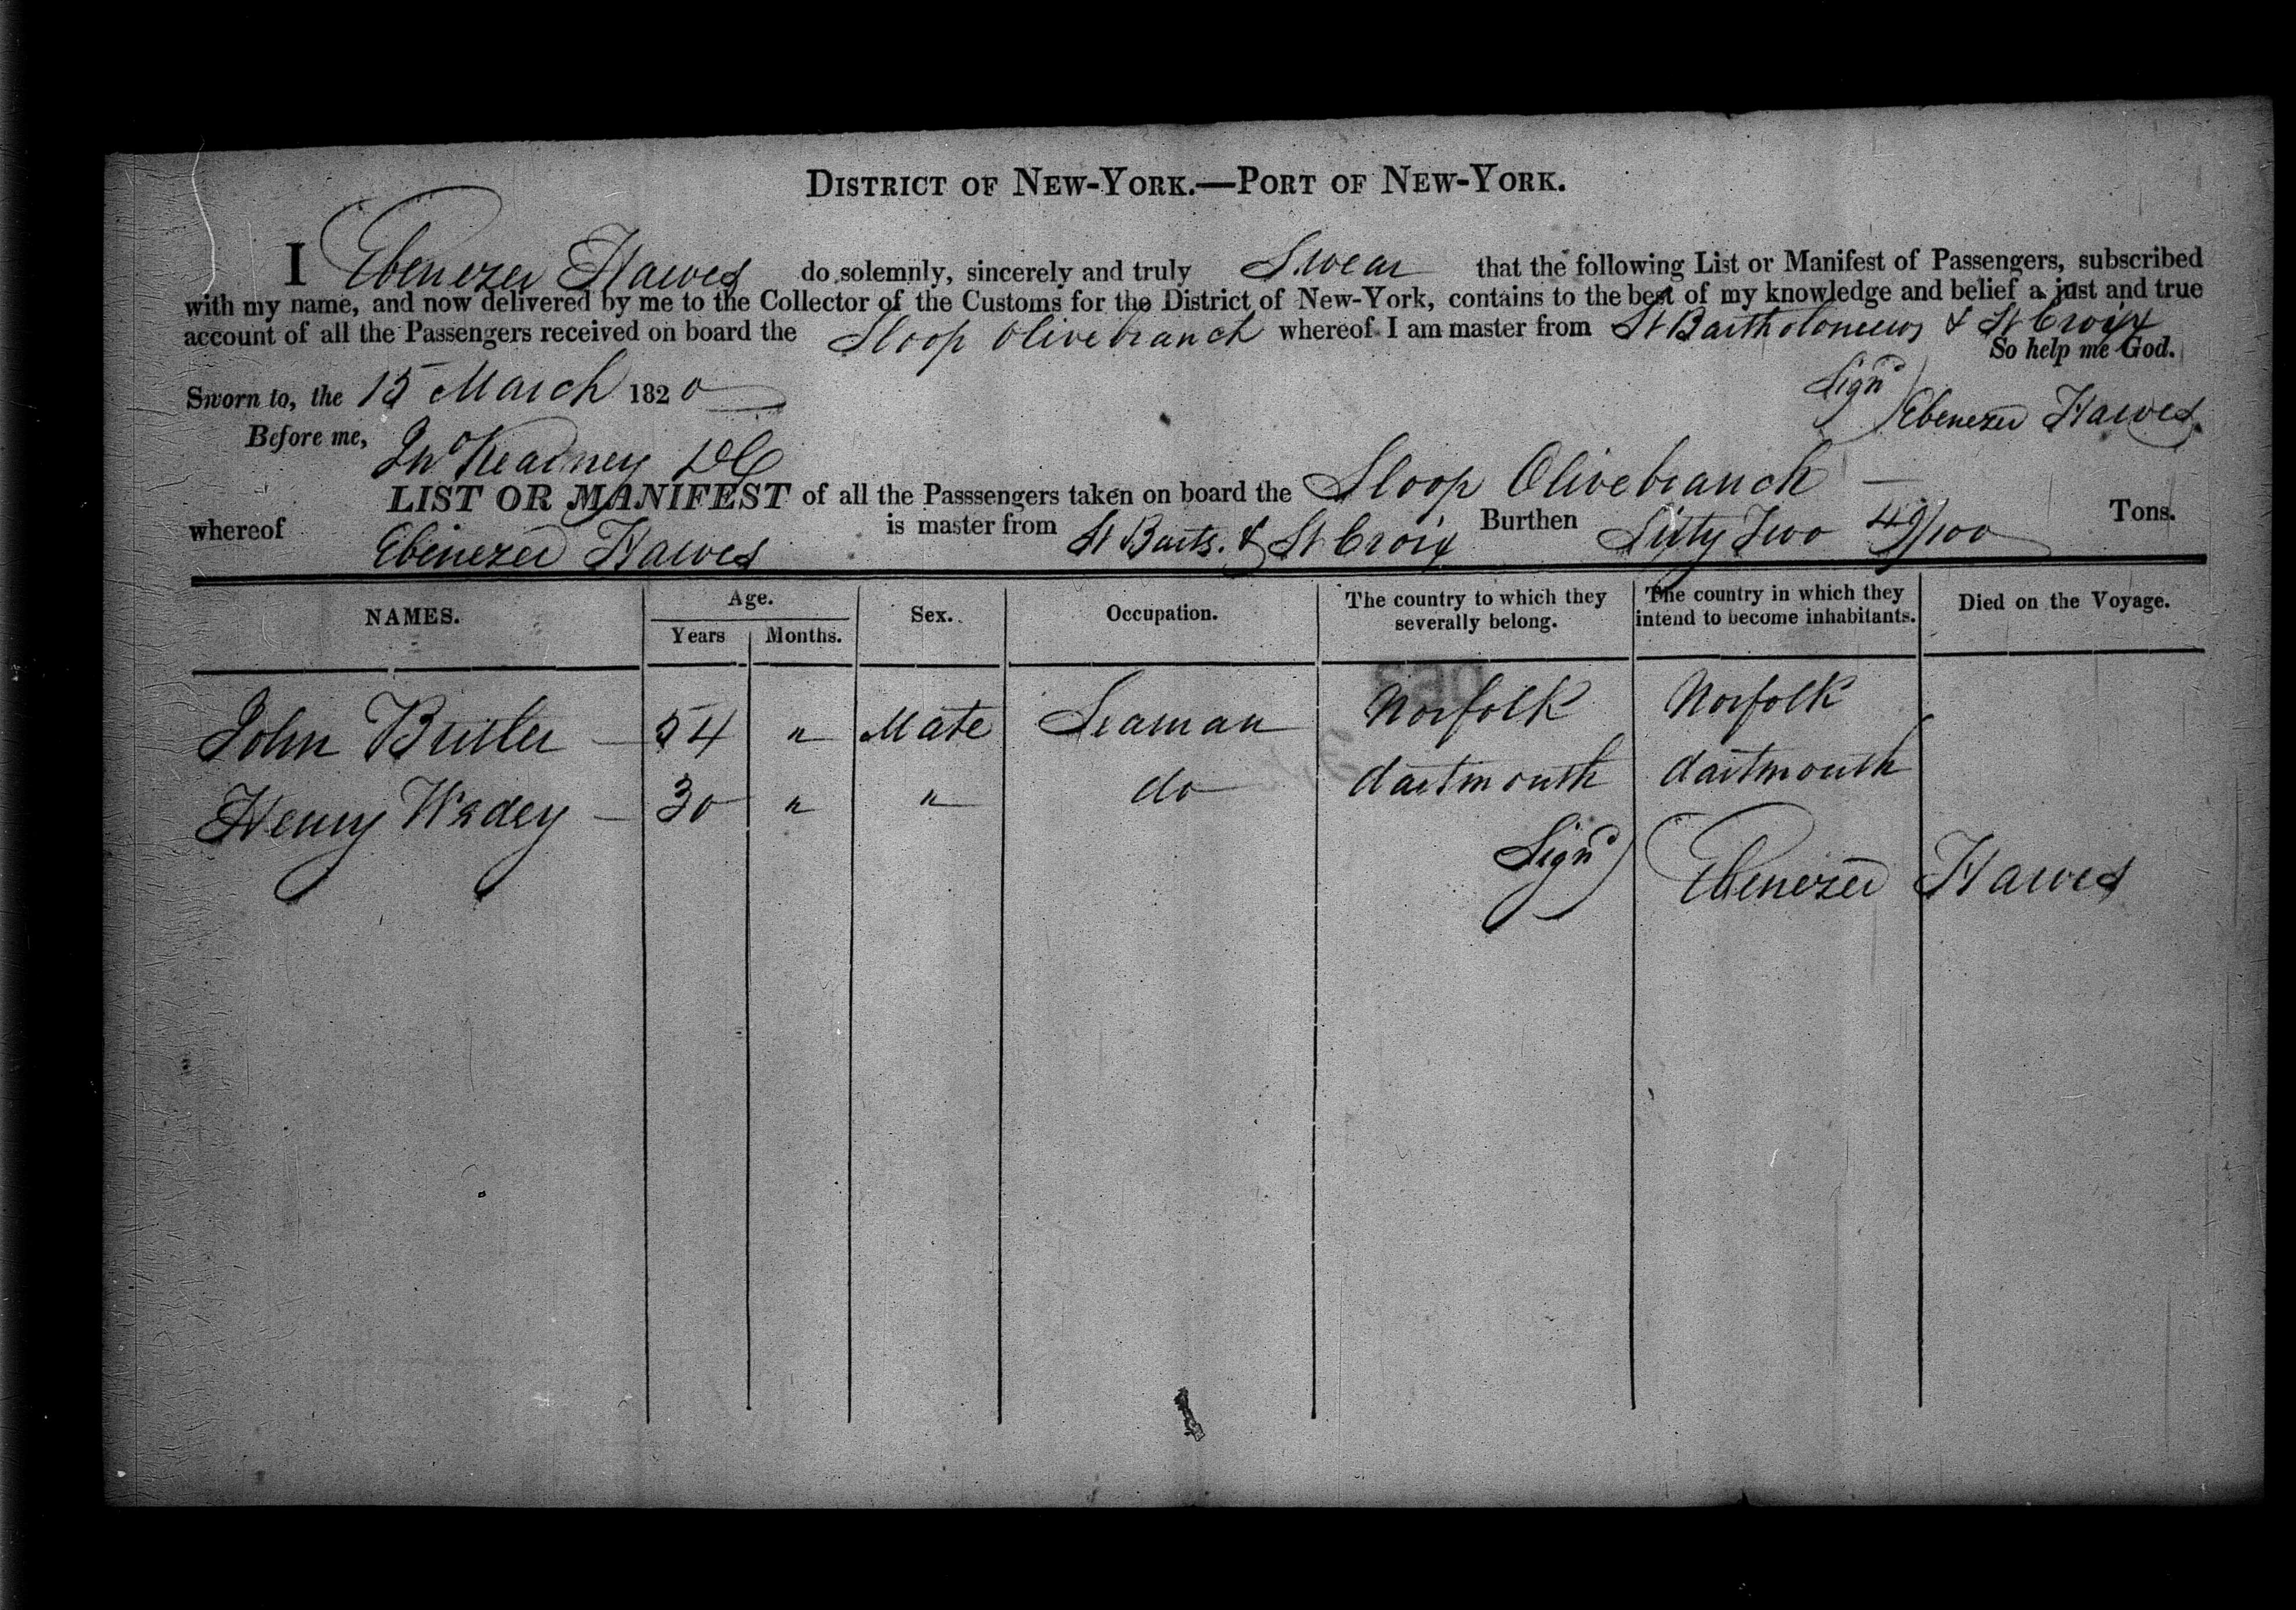 DISTRICT OF NEW-YORK.—PORT OF NEW-YORK.
I Ebenezer Hawes do solemnly, sincerely and truly Swear that the following List or Manifest of Passengers, subscribed
with my name, and now delivered by me to the Collector of the Customs for the District of New-York, contains to the best of my knowledge and belief a just and true
account of all the Passengers received on board the Sloop Olivebranch whereof I am master from St Bartholomews & St Croix
So help me God.
Sworn to, the 15 March 1820
Signd Ebenezer Hawes
Before me,
Jn Kearney DC
LIST OR MANIFEST of all the Passsengers taken on board the Sloop Olivebranch
whereof Ebenezer Hawes is master from St Barts. & St Croix Burthen Sixty Two 49/100 Tons.
NAMES. Age. Sex. Occupation. The country to which they severally belong. The country in which they intend to become inhabitants. Died on the Voyage.
Years Months.
John Butler 54 " Mate Seaman Norfolk Norfolk
Henry Wadey 30 " " do dartmouth dartmouth
Signd Ebenezer Hawes